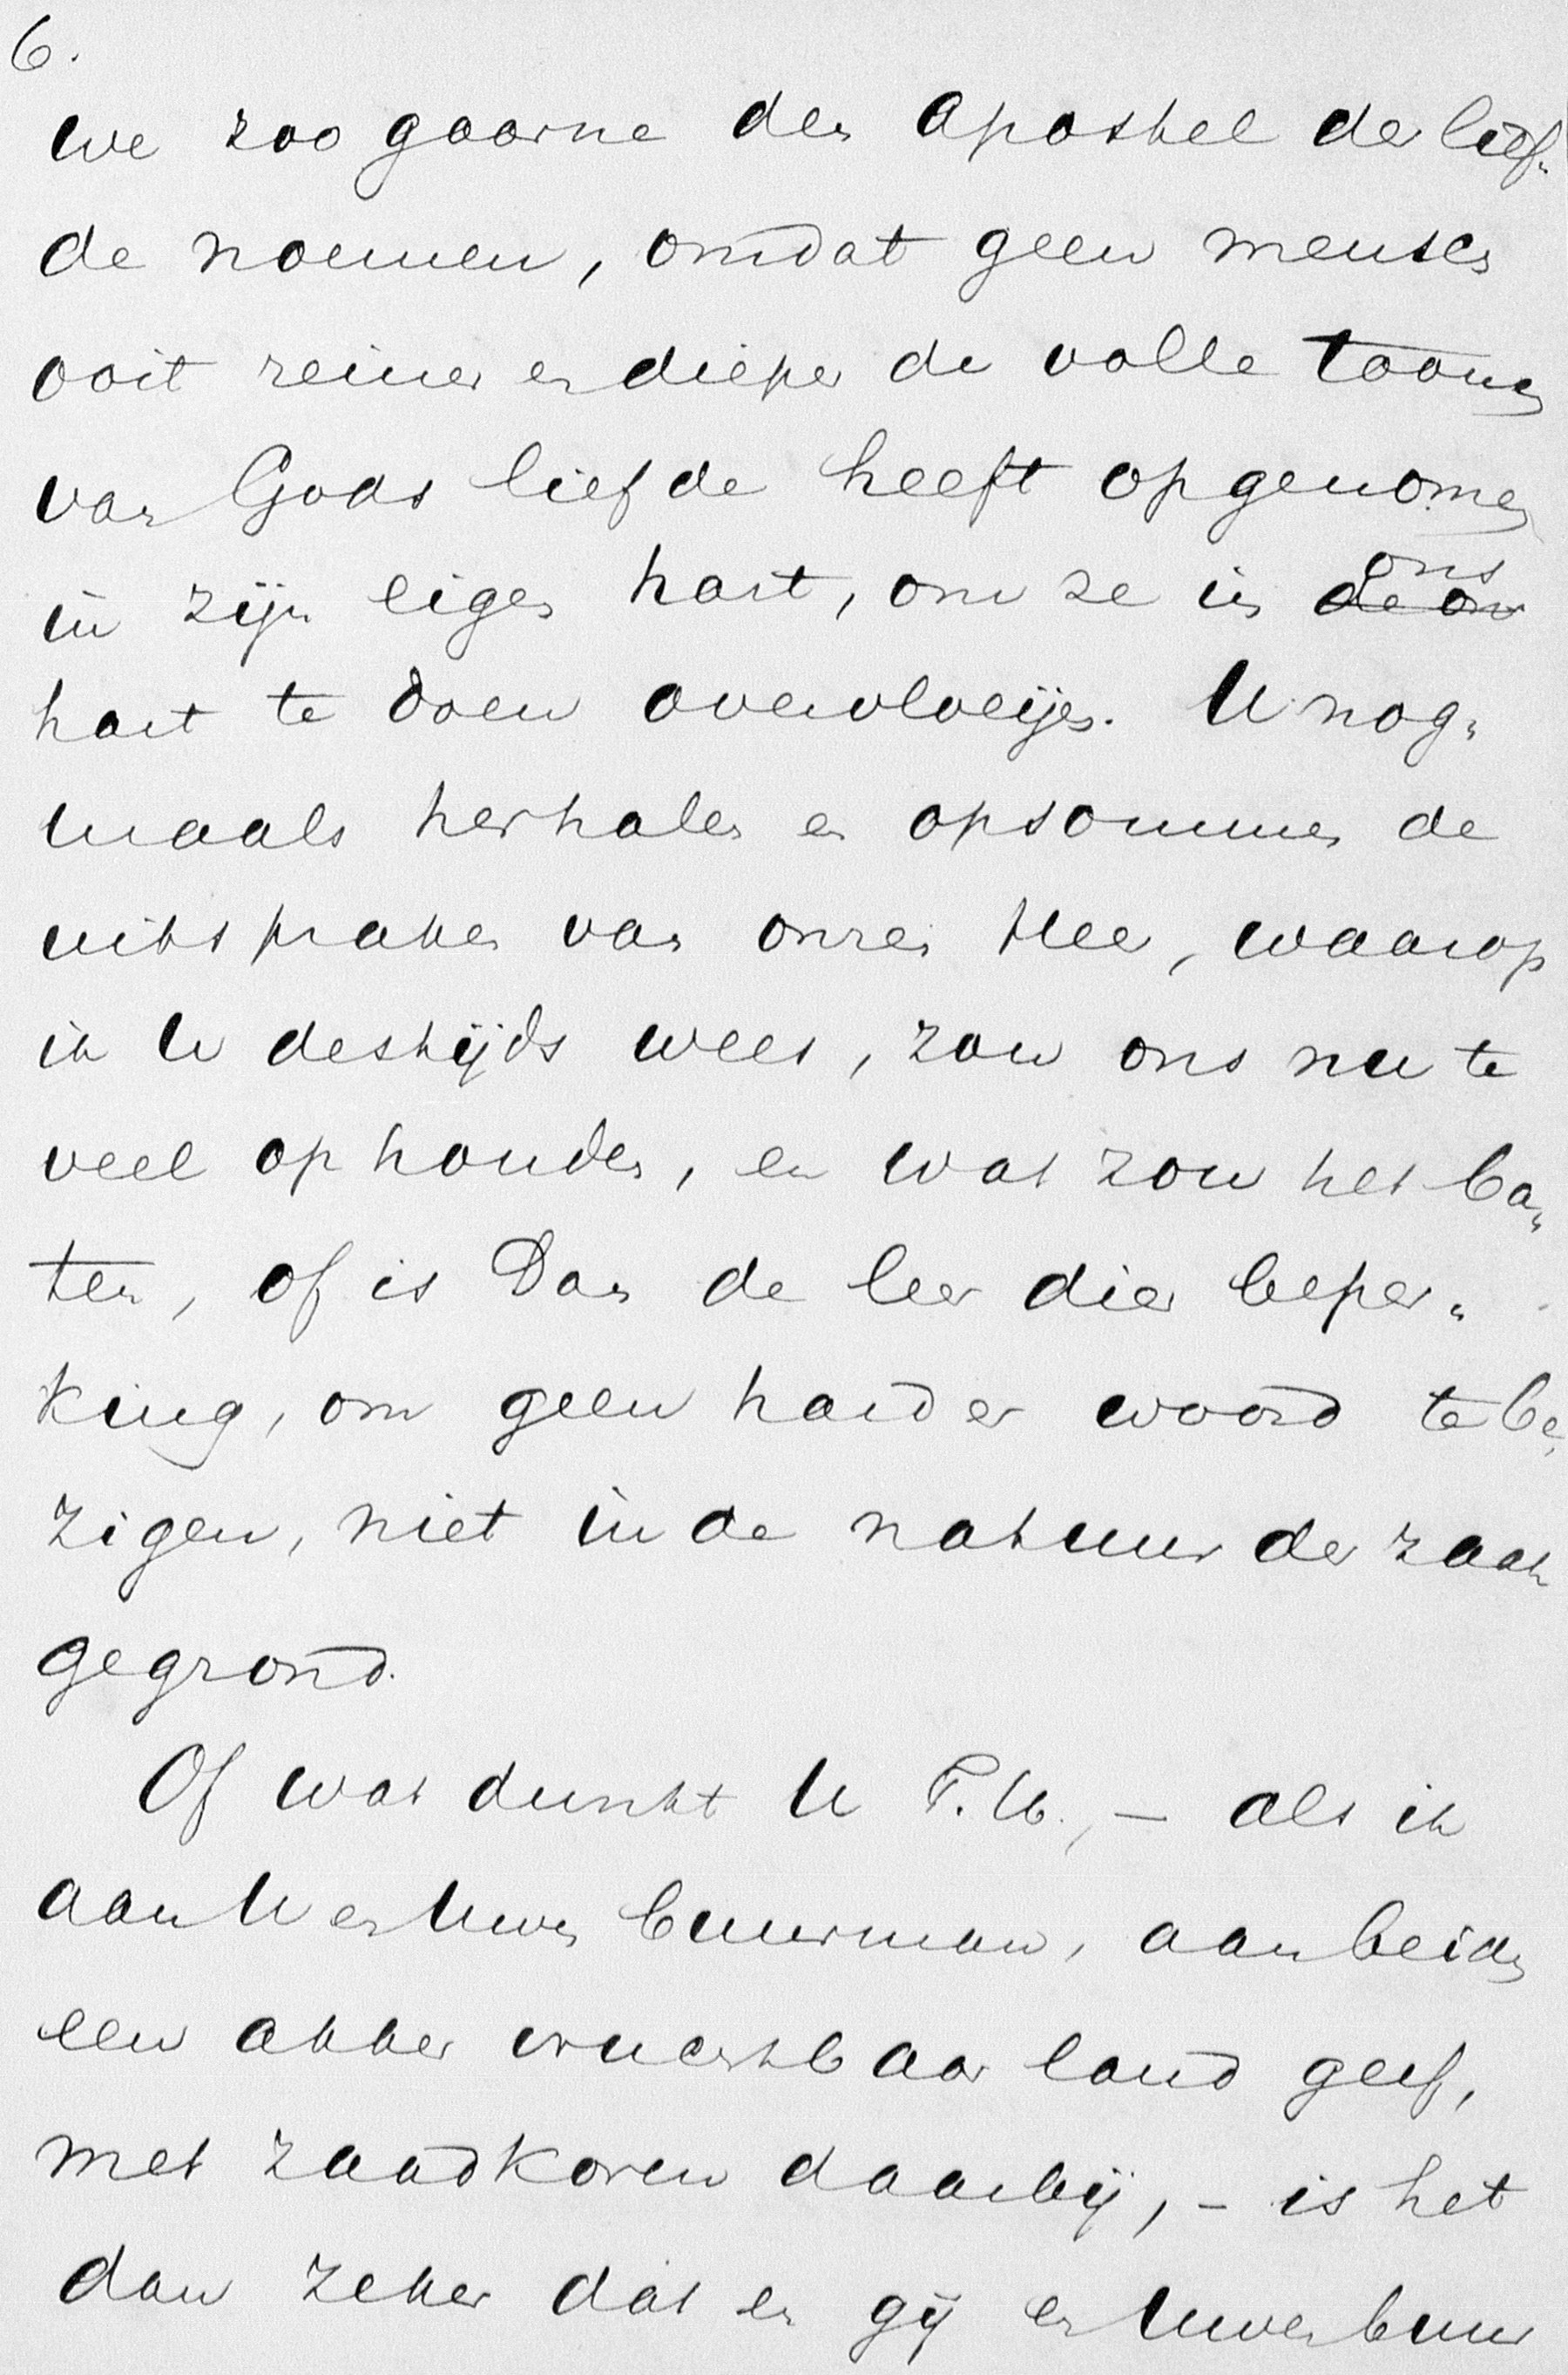 6.
we zoo gaarne den apostel der lief-
de noemen, omdat geen mensch
ooit reiner en dieper de volle toonen
van Gods liefde heeft opgenomen
in zijn eigen hart, om ze in de on ons
hart te doen overvloeijen. U nog-
maals herhalen en opsommen de
uitspraken van onzen Heer, waarop
ik U destijds wees, zou ons nu te
veel ophouden, en wat zou het ba-
ten, of is Dan de leer dier beper-
king, om geen harder woord te be-
zigen, niet in de natuur der zaak
gegrond.
Of wat dunkt U T.G., – als ik
aan U en Uwen buurman, aan beiden
een akker vruchtbaar land geef,
met zaadkoren daarbij, – is het
dan zeker dat en gij en Uwen buur